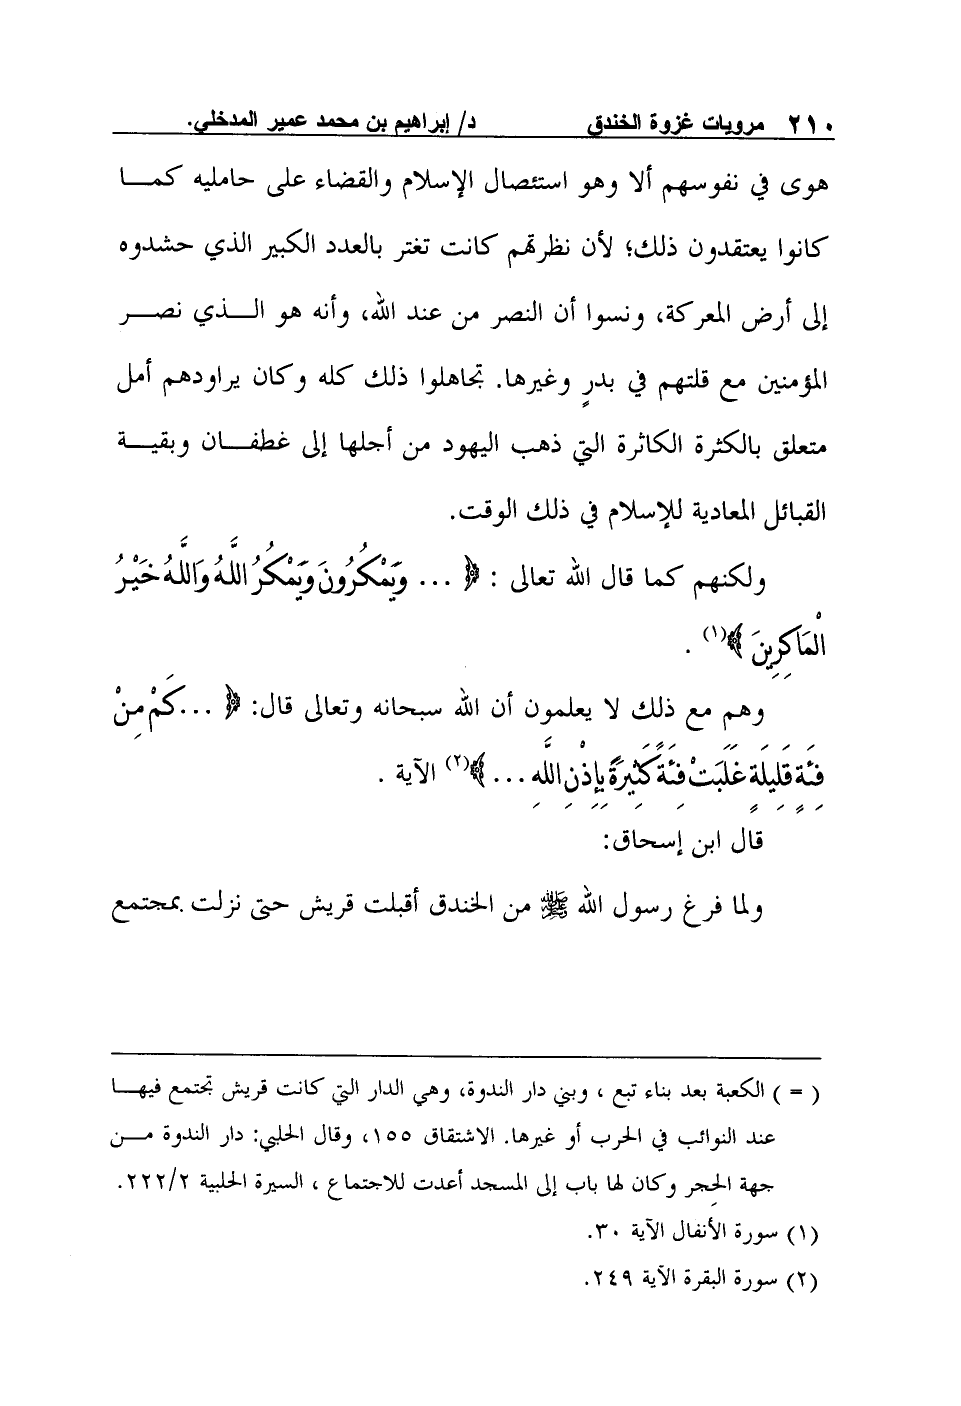 ٢١٠ مرويات غزوة الخندق د/ إبراهيم بن محمد عمير المدخلي.
هوى في نفوسهم ألا وهو استئصال الإسلام والقضاء على حامليه كمـــا
كانوا يعتقدون ذلك؛ لأن نظرتهم كانت تغتر بالعدد الكبير الذي حشدوه
إلى أرض المعركة، ونسوا أن النصر من عند الله، وأنه هو الـــذي نصـــر
المؤمنين مع قلتهم في بدرٍ وغيرها. تجاهلوا ذلك كله وكان يراودهم أمل
متعلق بالكثرة الكاثرة التي ذهب اليهود من أجلها إلى غطفـــان وبقيـــة
القبائل المعادية للإسلام في ذلك الوقت.
ولكنهم كما قال الله تعالى : ﴿ ... وَيَمْكُرُونَ وَيَمْكُرُ اللَّهُ وَاللَّهُ خَيْرُ
الْمَاكِرِينَ ﴾(١) .
وهم مع ذلك لا يعلمون أن الله سبحانه وتعالى قال: ﴿ ...كَمْ مِنْ
فِئَةٍ قَلِيلَةٍ غَلَبَتْ فِئَةً كَثِيرَةً بِإِذْنِ اللَّهِ ... ﴾(٢) الآية .
قال ابن إسحاق:
ولما فرغ رسول الله ﷺ من الخندق أقبلت قريش حتى نزلت بمجتمع
( = ) الكعبة بعد بناء تبع ، وبني دار الندوة، وهي الدار التي كانت قريش تجتمع فيهـــا
عند النوائب في الحرب أو غيرها. الاشتقاق ١٥٥، وقال الحلبي: دار الندوة مـــن
جهة الحِجر وكان لها باب إلى المسجد أعدت للاجتماع ، السيرة الحلبية ٢٢٢/٢.
(١) سورة الأنفال الآية ٣٠.
(٢) سورة البقرة الآية ٢٤٩.